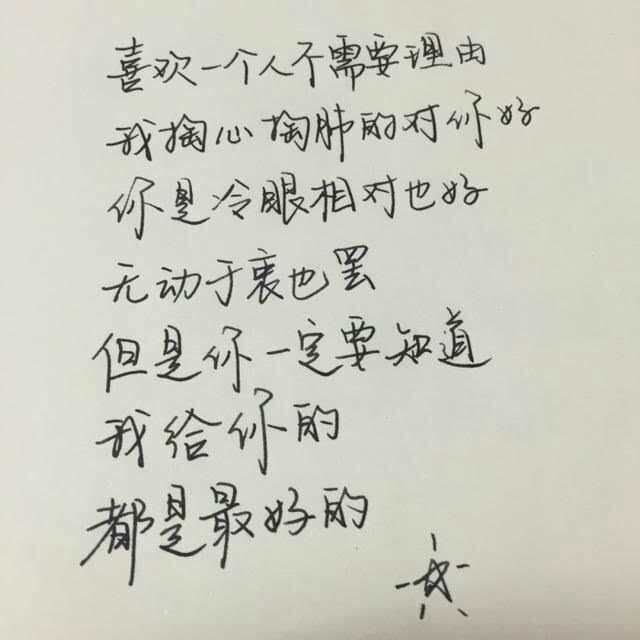 喜欢一个人不需要理由
我掏心掏肺的对你好
你是冷眼相对也好
无动于衷也罢
但是你一定要知道
我给你的
都是最好的